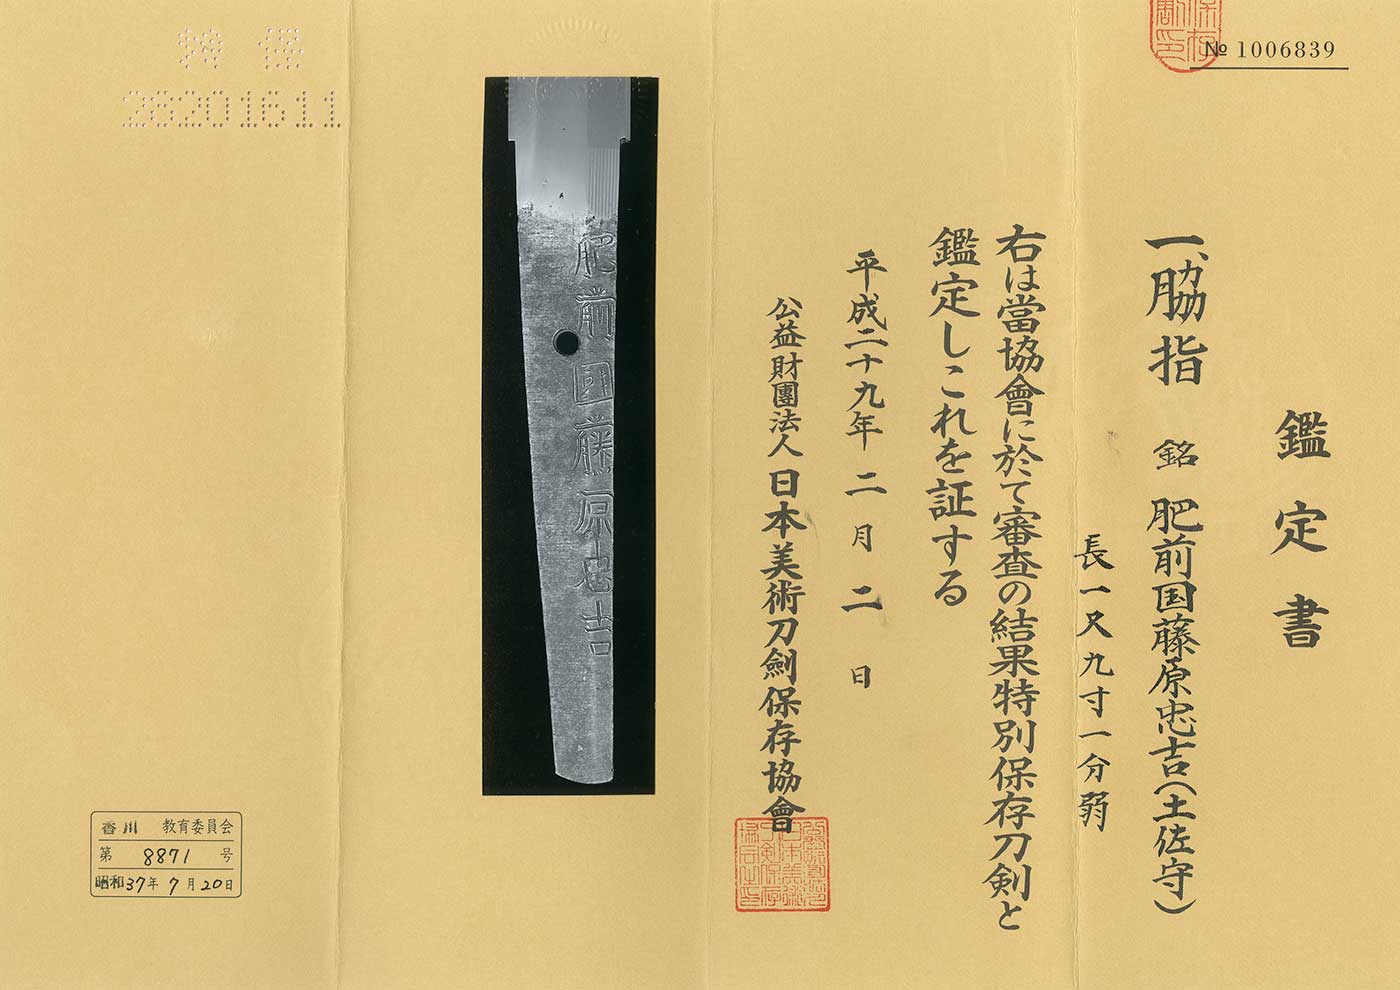 № 1006839
鑑定書
一、脇指 銘 肥前国藤原忠吉(土佐守)
長一尺九寸一分弱
右は當協會に於て審査の結果特別保存刀剣と
鑑定しこれを証する
平成二十九年二月二日
公益財團法人 日本美術刀劍保存協會
肥前國藤原忠吉
28201611
香川 教育委員会
第 8871 号
昭和37年7月20日